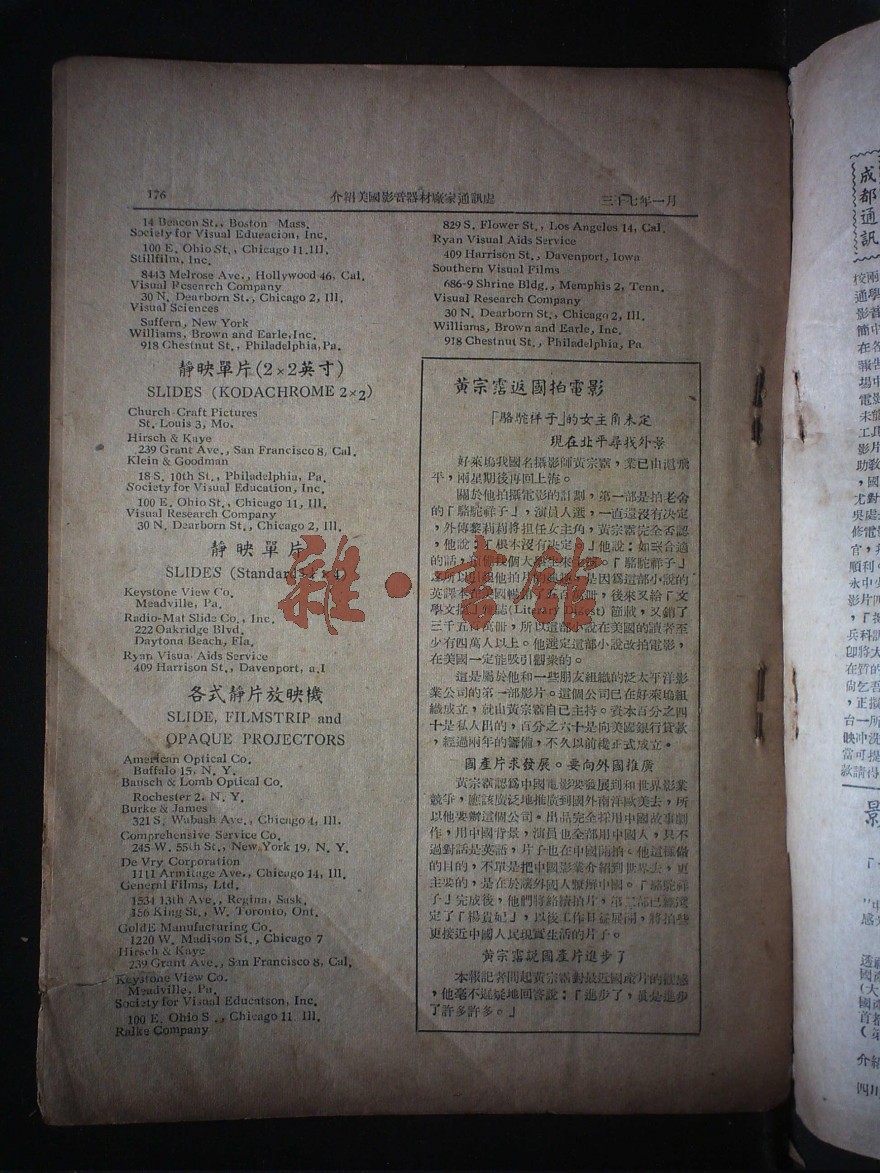 176
介紹美國影音器材廠家通訊處
三十七年一月
14 Beacon St., Boston Mass.
Society for Visual Educacion, Inc.
100 E. Ohio St., Chicago 11.Ill.
Stillfilm, Inc.
8443 Melrose Ave., Hollywood 46, Cal.
Visual Research Company
30 N. Dearborn St., Chicago 2, Ill.
Visual Sciences
Suffern, New York
Williams, Brown and Earle, Inc.
918 Chestnut St., Philadelphia, Pa.
靜映單片(2×2英寸)
SLIDES (KODACHROME 2×2)
Church Craft Pictures
St. Louis 3, Mo.
Hirsch & Kaye
239 Grant Ave., San Francisco 8, Cal.
Klein & Goodman
18 S. 10th St., Philadelphia, Pa.
Society for Visual Education, Inc.
100 E. Ohio St., Chicago 11, Ill.
Visual Research Company
30 N. Dearborn St., Chicago 2, Ill.
靜映單片
SLIDES (Standard
Keystone View Co.
Meadville, Pa.
Radio-Mat Slide Co., Inc.
222 Oakridge Blvd.
Daytona Beach, Fla.
Ryan Visua Aids Service
409 Harrison St., Davenport, a.I
各式靜片放映機
SLIDE, FILMSTRIP and
OPAQUE PROJECTORS
American Optical Co.
Buffalo 15, N. Y.
Bausch & Lomb Optical Co.
Rochester 2, N. Y.
Burke & James
321 S. Wabash Ave., Chicago 4, Ill.
Comprehensive Service Co.
245 W. 55th St., New York 19, N. Y.
De Vry Corporation
1111 Armitage Ave., Chicago 14, Ill.
General Films, Ltd.
1534 13th Ave., Regina, Sask.
156 King St., W. Toronto, Ont.
GoldE Manufacturing Co.
1220 W. Madison St., Chicago 7
Hirsch & Kaye
239 Grant Ave., San Francisco 8, Cal.
Keystone View Co.
Meadville, Pa.
Society for Visual Educatson, Inc.
100 E. Ohio S., Chicago 11. Ill.
Ralke Company
829 S. Flower St., Los Angeles 14, Cal.
Ryan Visual Aids Service
409 Harrison St., Davenport, Iowa
Southern Visual Films
686-9 Shrine Bldg., Memphis 2, Tenn.
Visual Research Company
30 N. Dearborn St., Chicago 2, Ill.
Williams, Brown and Earle, Inc.
918 Chestnut St., Philadelphia, Pa.
黃宗霑返國拍電影
「駱駝祥子」的女主角未定
現在北平尋找外景
好來塢我國名攝影師黃宗霑，業已由滬飛
平，兩星期後再回上海。
關於他拍攝電影的計劃，第一部是拍老舍
的「駱駝祥子」，演員人選，一直還沒有決定
，外傳黎莉莉將担任女主角，黃宗霑完全否認
，他說：「根本沒有決定。」他說：如
的話，
英譯本在
學文摘」雜誌(Literary Digest)節載，又銷了
三千五百萬冊，所以這部小說在美國的讀者至
少有四萬人以上。他選定這部小說改拍電影，
在美國一定能吸引觀衆的。
這是屬於他和一些朋友組織的泛太平洋影
業公司的第一部影片。這個公司已在好來塢組
織成立，就由黃宗霑自已主持。資本百分之四
十是私人出的，百分之六十是向美國銀行貸款
，經過兩年的籌備，不久以前纔正式成立。
國產片求發展。要向外國推廣
黃宗霑認爲中國電影要發展到和世界影業
競爭，應該廣泛地推廣到國外南洋歐美去，所
以他要辦這個公司。出品完全採用中國故事劇
作，用中國背景，演員也全部用中國人，只不
過對話是英語，片子也在中國開拍。他這樣做
的目的，不單是把中國影業介紹到世界去，更
主要的，是在於讓外國人瞭解中國。「駱駝祥
子」完成後，他們將絡續拍片，第二部已經選
定了「楊貴妃」，以後工作日益展開，將拍些
更接近中國人民現實生活的片子。
黃宗霑説國產片進步了
本報記者問起黃宗霑對最近國產片的觀感
，他毫不遲疑地回答說：「進步了，眞是進步
了許多許多。」
雜·書館
成都通訊